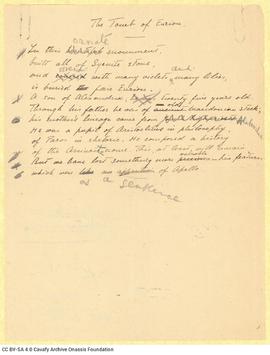 The Tomb of Eurion
ornate
In this monument,
built all of Syenite stone,
and
and with many violets, many lilies,
is buried the fair Eurion.
A son of Alexandria, twenty five years old.
Through his father he was of Macedonian stock;
his mother's lineage came from
He was a pupil of Aristoclitus in philosophy,
of Paros in rhetoric. He composed a history
of the Arsinoite nome. This, at least, will remain
valuable
But we have lost something more precious — his features,
which were like an of Apollo.
as a